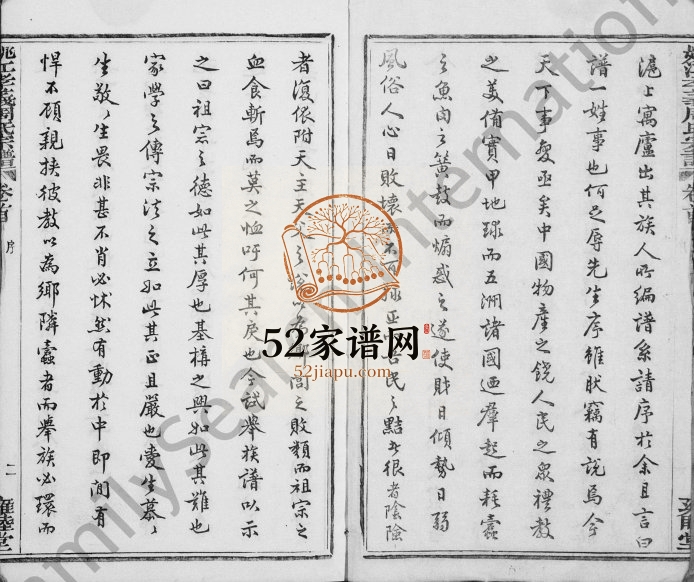 滬上寓廬出其族人所編譜系請序於余且言曰
譜一姓事也何足辱先生序雖肰竊有說焉今
天下事變亟矣中國物產之饒人民之眾禮教
之美備實甲地球而五洲諸國迺羣起而耗蠹
之魚肉之簧鼓而煽惑之遂使財日傾勢日弱
風俗人心日敗壞而不 民之黠者很者陰險
者復依附天主天 之 閭之敗類而祖宗之
血食斬焉而莫之恤吁何其戾也今試舉族譜以示
之曰祖宗之德如此其厚也基構之興如此其難也
家學之傳宗法之立如此其正且嚴也愛生慕慕
生敬敬生畏非甚不肖必怵然有動於中即間有
悍不顧親挾彼教以為鄉隣蠹者而舉族必環而
姚江孝義周氏宗譜 卷首 序 二
52家谱网
52jiapu.com
FamilySearch International